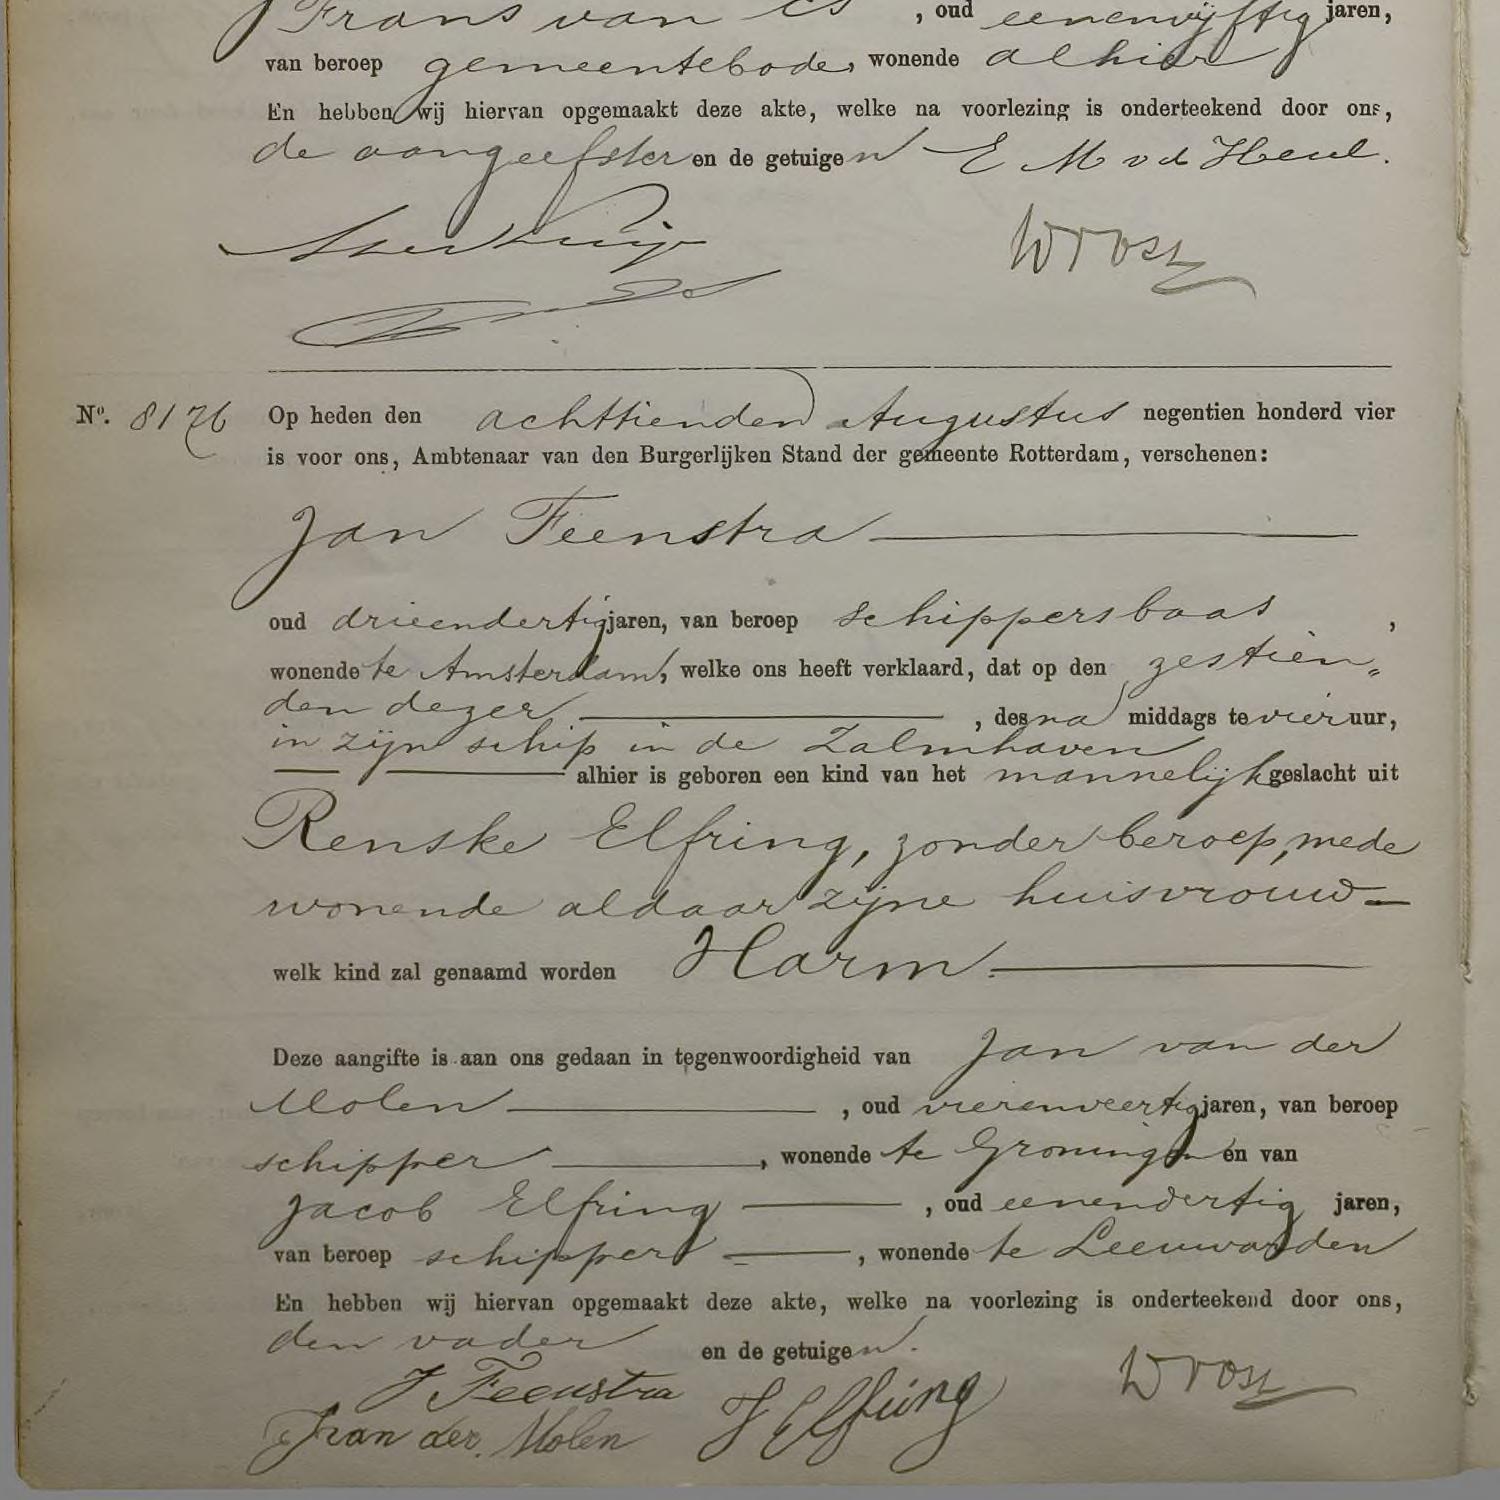 Frans van Es , oud eenenvijftig jaren,
van beroep gemeentebode, wonende alhier
En hebben wij hiervan opgemaakt deze akte, welke na voorlezing is onderteekend door ons,
de aangeefster en de getuigen E M v d Heul.
Nº. 8176 Op heden den achttienden Augustus negentien honderd vier
is voor ons, Ambtenaar van den Burgerlijken Stand der gemeente Rotterdam, verschenen:
Jan Feenstra
oud drieendertig jaren, van beroep schippersbaas ,
wonende te Amsterdam, welke ons heeft verklaard, dat op den zestien„
den dezer , des na middags te vier uur,
in zijn schip in de Zalmhaven
alhier is geboren een kind van het mannelijk geslacht uit
Renske Elfring, zonder beroep, mede
wonende aldaar zijne huisvrouw
welk kind zal genaamd worden Harm
Deze aangifte is aan ons gedaan in tegenwoordigheid van Jan van der
Molen , oud vierenveertig jaren, van beroep
schipper , wonende te Groningen en van
Jacob Elfring , oud eenendertig jaren,
van beroep schipper , wonende te Leeuwarden
En hebben wij hiervan opgemaakt deze akte, welke na voorlezing is onderteekend door ons,
den vader en de getuigen.
J Feenstra
J van der Molen J Elfring